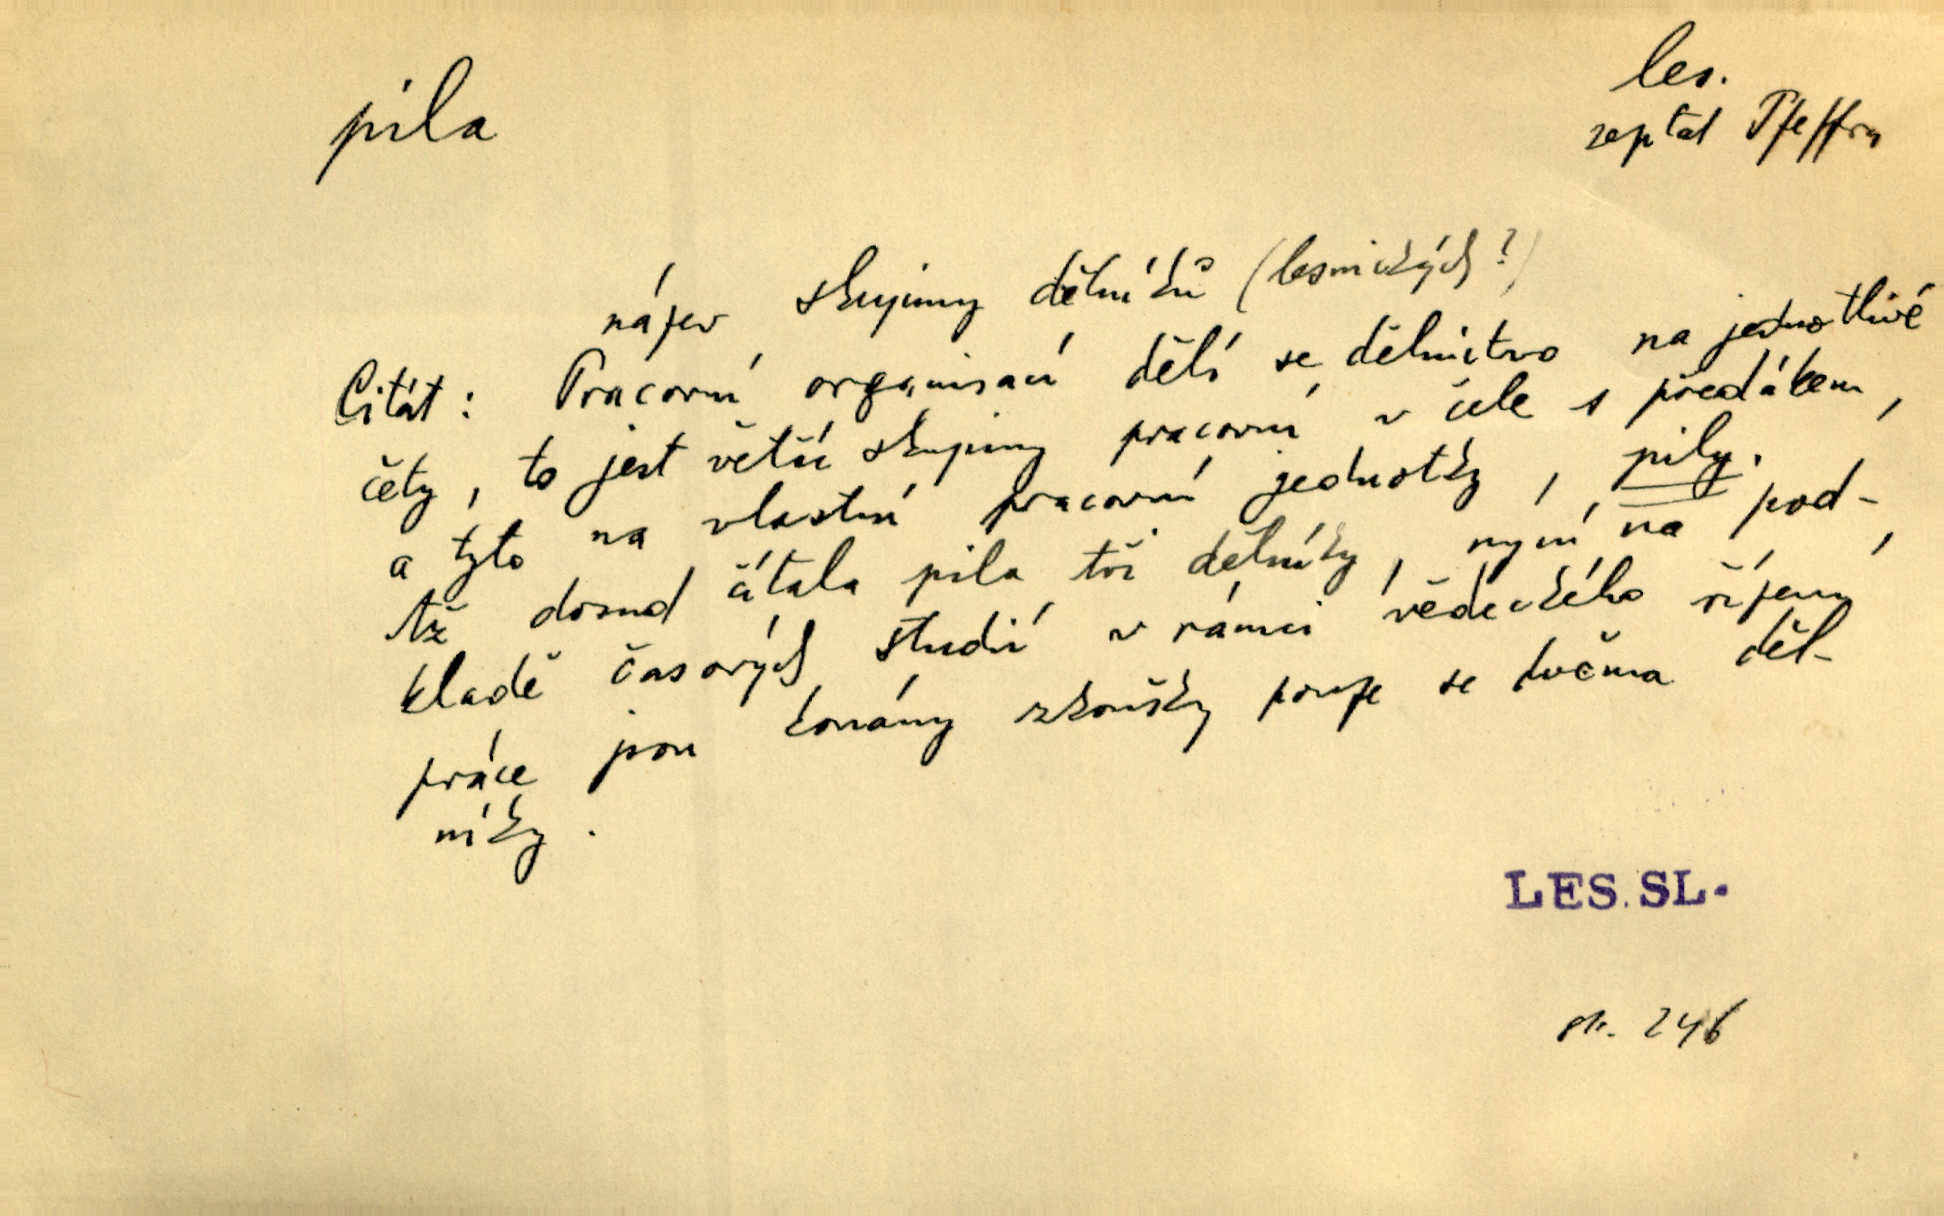 pila
les.
zeptat Pfeffra
název skupiny dělníků (lesnických?)
Citát: Pracovní organisací dělí se dělnictvo na jednotlivé
čety, to jest větší skupiny pracovní v čele s předákem,
a tyto na vlastní pracovní jednotky, pily.
Až dosud čítala pila tři dělníky, nyní na pod-
kladě časových studií v rámci vědeckého řízení
práce jsou konány zkoušky pouze se dvěma děl-
níky.
LES. SL.
str. 246